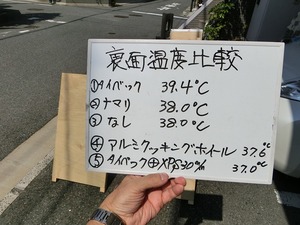 裏面温度比較
①タイベック 39.4℃
②ナマリ 38.0℃
③なし 38.0℃
④アルミクッキングホイール 37.6℃
⑤タイベック⊕XPS30m/m 37.0℃